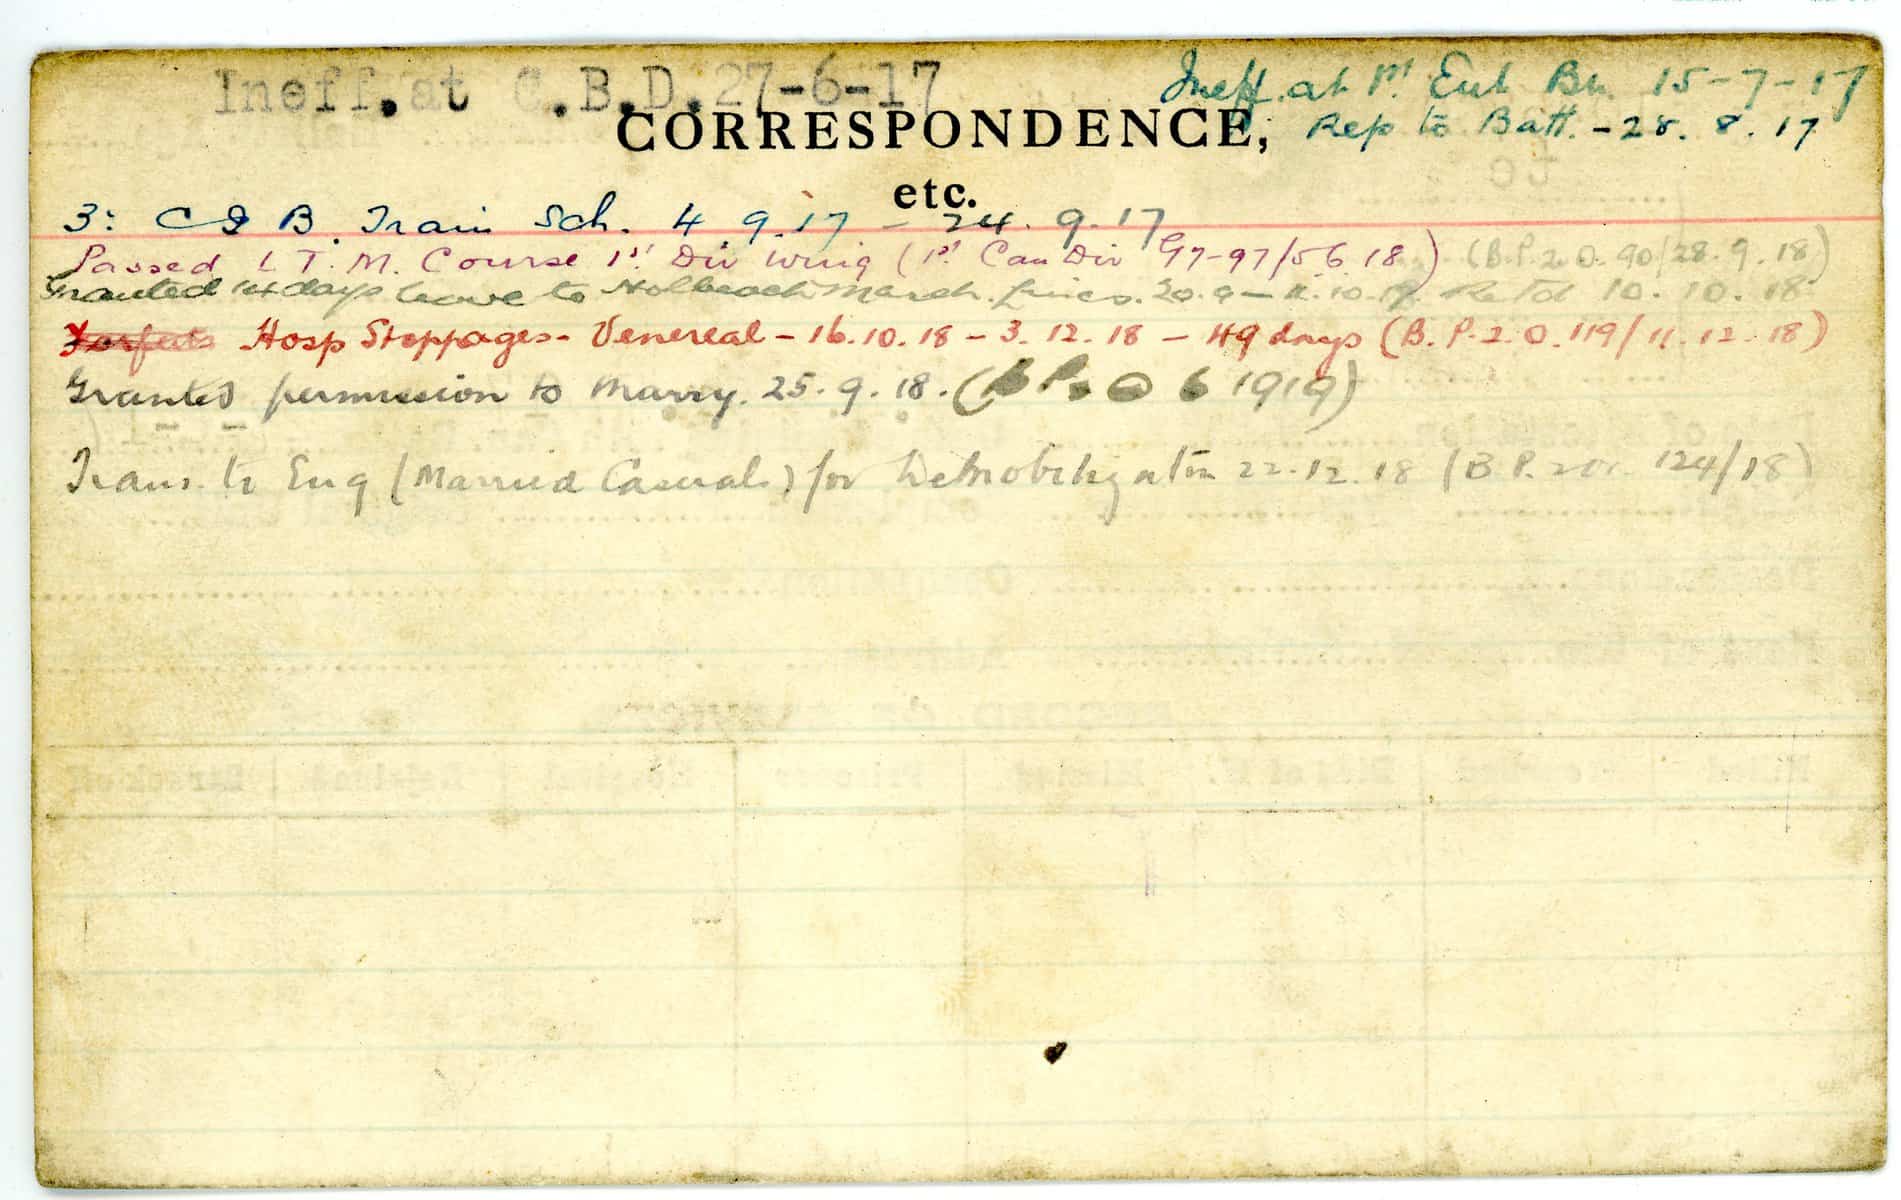 Ineff. at C.B.D. 27-6-17
Ineff. at 1st Ent Bn. 15-7-17
CORRESPONDENCE,
Rep to Batt. - 28. 8. 17
etc.
3: C I B. Train Sch. 4 9.17 - 24. 9. 17
Passed L T. M. Course 1st Div Wing (1st Can Div G7-97/5 6 18) (B.P.2.O. 90/28.9.18)
Granted 14 days leave to Holbeach March. Lincs. 20.9 - 11.10.18. Retd 10. 10. 18.
Forfeits Hosp Stoppages - Venereal - 16.10.18 - 3. 12. 18 - 49 days (B. P. 2. O. 119/11. 12. 18)
Granted permission to marry. 25. 9. 18. (B P. O 6 1919)
Trans. to Eng (Married Casuals) for Demobilization 22.12.18 (B.P. 2 O. 124/18)